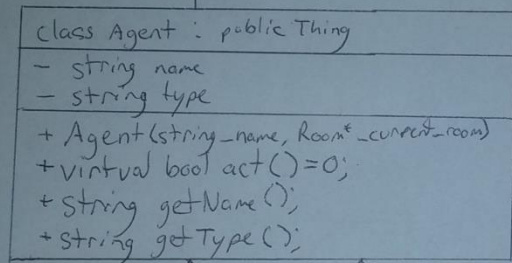 class Agent : public Thing
- string name
- string type
+ Agent(string_name, Room* _current_room)
+ virtual bool act()=0;
+ string getName();
+ string getType();